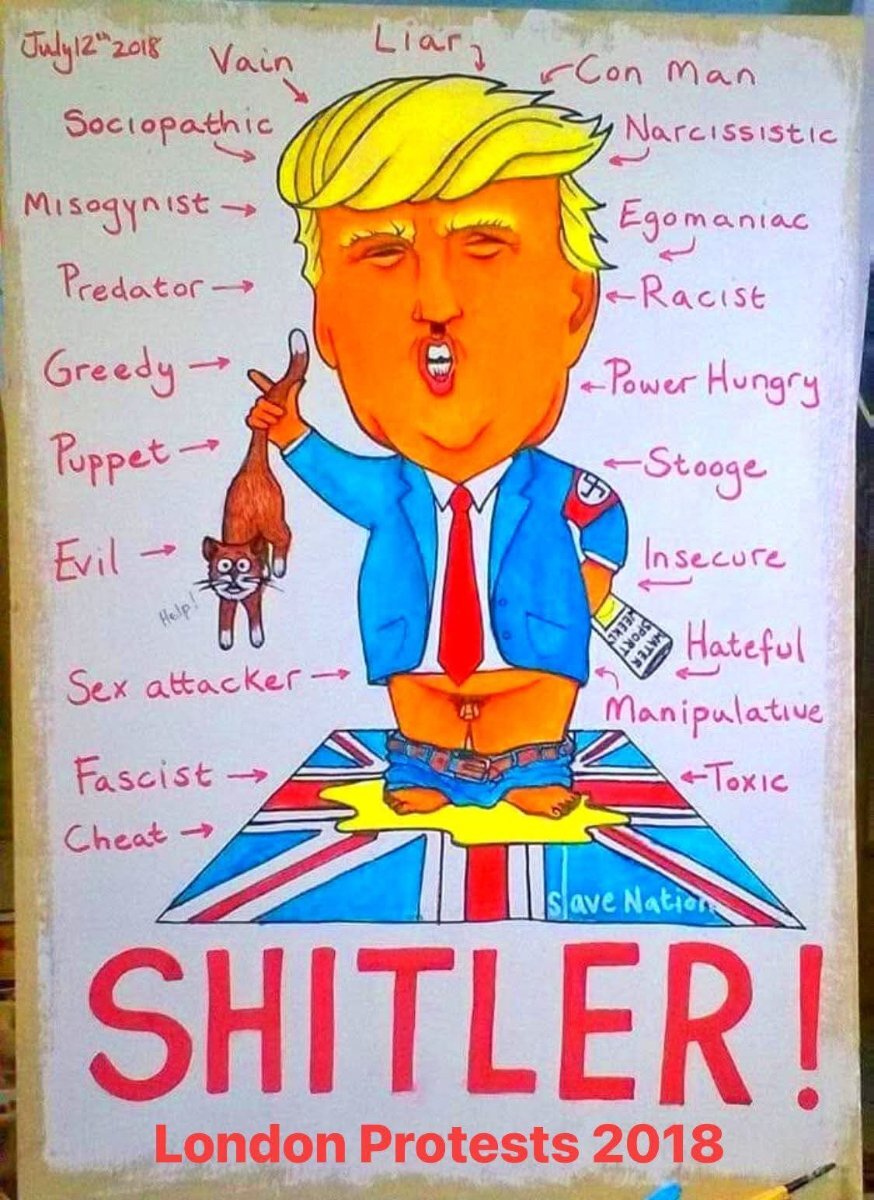 July 12th 2018
Vain
Liar
Con Man
Sociopathic
Narcissistic
Misogynist
Egomaniac
Predator
Racist
Greedy
Power Hungry
Puppet
Stooge
Evil
Insecure
Help!
HATER
SPORT
WEEKLY
Hateful
Sex attacker
Manipulative
Fascist
Toxic
Cheat
Slave Nation
SHITLER!
London Protests 2018